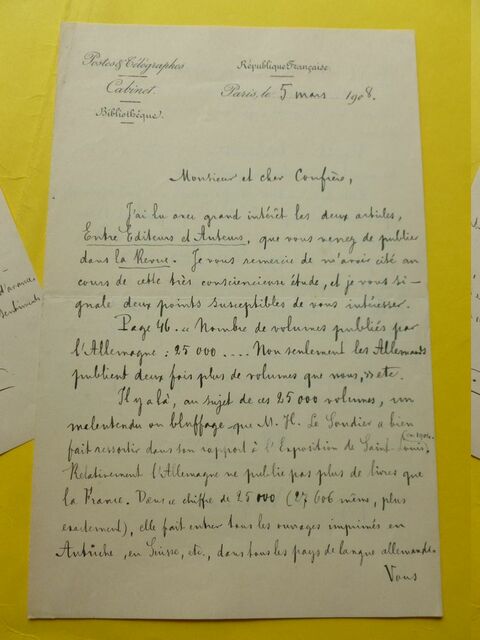 Postes & Télégraphes
Cabinet.
Bibliothèque.
République Française
Paris, le 5 mars 1908.
Monsieur et cher Confrère,
J'ai lu avec grand intérêt les deux articles,
Entre Editeurs et Auteurs, que vous venez de publier
dans la Revue. Je vous remercie de m'avoir cité au
cours de cette très consciencieuse étude, et je vous si-
gnale deux points susceptibles de vous intéresser.
Page 46. « Nombre de volumes publiés par
l'Allemagne : 25 000 .... Non seulement les Allemands
publient deux fois plus de volumes que nous, » etc.
Il y a là, au sujet de ces 25 000 volumes, un
malentendu ou bluffage que M. H. Le Soudier a bien
fait ressortir dans son rapport à l'Exposition de Saint-Louis.
(en 1904)
Relativement l'Allemagne ne publie pas plus de livres que
la France. Dans ce chiffre de 25 000 (27 606 même, plus
exactement), elle fait entrer tous les ouvrages imprimés en
Autriche, en Suisse, etc., dans tous les pays de langue allemande.
Vous
d'avance
sentiments